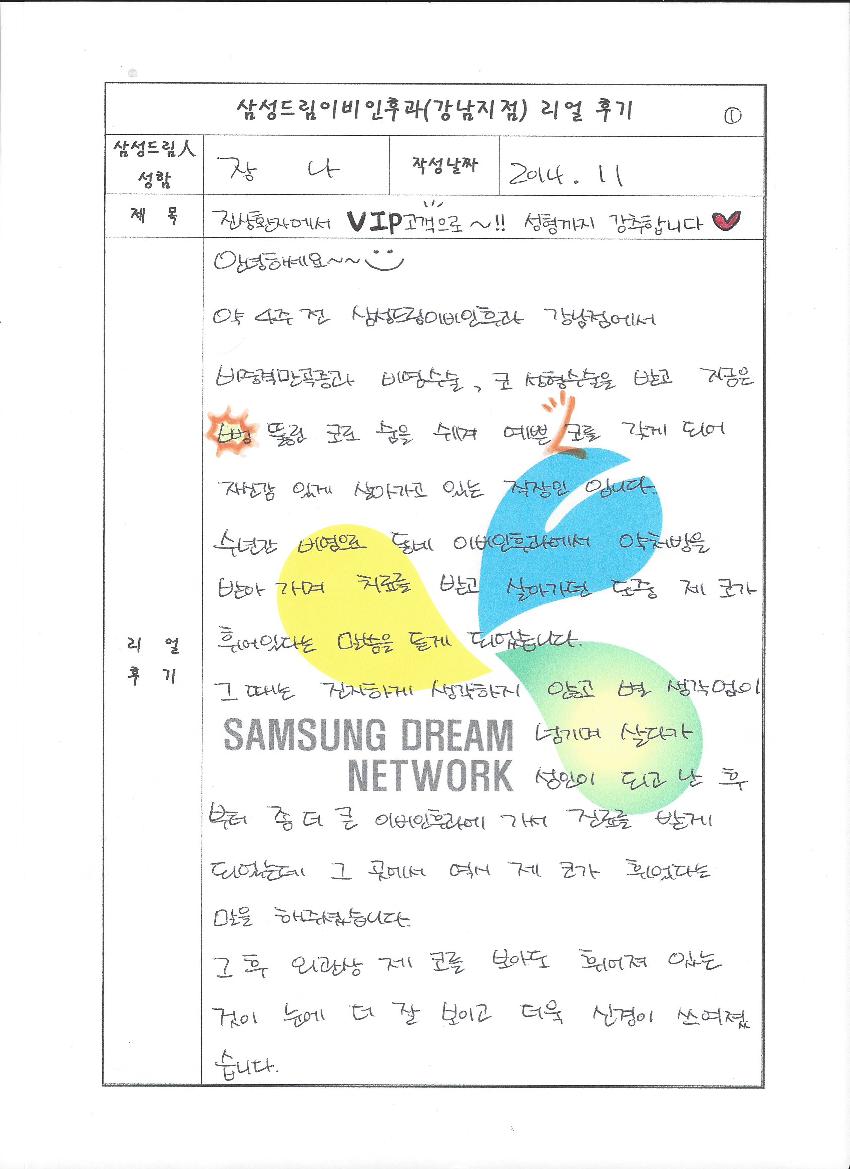 삼성드림이비인후과(강남지점) 리얼 후기 ①
삼성드림人 성함 장 나 작성날짜 2014. 11
제 목 진상환자에서 VIP고객으로~!! 성형까지 강추합니다 ♥
안녕하세요~~
약 4주 전 삼성드림이비인후과 강남점에서
비중격만곡증과 비염수술, 코 성형수술을 받고 지금은
뻥 뚫린 코로 숨을 쉬며 예쁜 코를 갖게 되어
자신감 있게 살아가고 있는 직장인 입니다.
수년간 비염으로 동네 이비인후과에서 약처방을
받아 가며 치료를 받고 살아가던 도중 제 코가
휘어있다는 말씀을 듣게 되었습니다.
그 때는 진지하게 생각하지 않고 별 생각없이
SAMSUNG DREAM 넘기며 살다가
NETWORK 성인이 되고 난 후
부터 좀 더 큰 이비인후과에 가서 진료를 받게
되었는데 그 곳에서 역시 제 코가 휘었다는
말을 해주셨습니다.
그 후 외관상 제 코를 보아도 휘어져 있는
것이 눈에 더 잘 보이고 더욱 신경이 쓰여졌
습니다.
리 얼
후 기